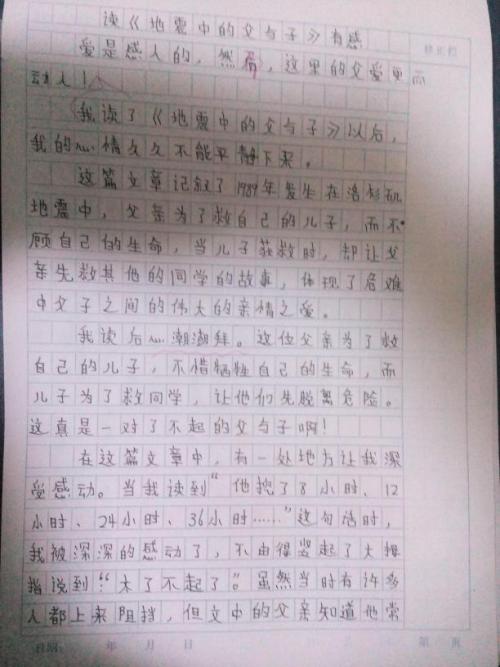 读《地震中的父与子》有感
爱是感人的，然而，这里的父爱更而
动人！
我读了《地震中的父与子》以后，
我的心情久久不能平静下来。
这篇文章记叙了1989年发生在洛杉矶
地震中，父亲为了救自己的儿子，而不
顾自己的生命，当儿子获救时，却让父
亲先救其他的同学的故事，体现了危难
中父子之间的伟大的亲情之爱。
我读后心潮澎拜。这位父亲为了救
自己的儿子，不惜牺牲自己的生命，而
儿子为了救同学，让他们先脱离危险。
这真是一对了不起的父与子啊！
在这篇文章中，有一处地方让我深
受感动。当我读到“他挖了8小时、12
小时、24小时、36小时……”这句话时，
我被深深的感动了，不由得竖起了大拇
指说到：“太了不起了”。虽然当时有许多
人都上来阻挡，但文中的父亲知道他常
年 月 日
第 页